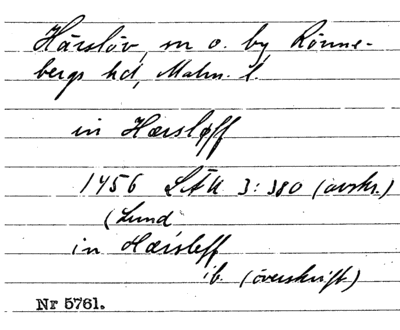 Hårslöv, sn o. by Rönne-
bergs hd, Malm. l.
in Hærsløff
1456 LÄU 3: 380 (avskr.)
(Lund
in Hærsleff
ib. (överskrift)
Nr 5761.